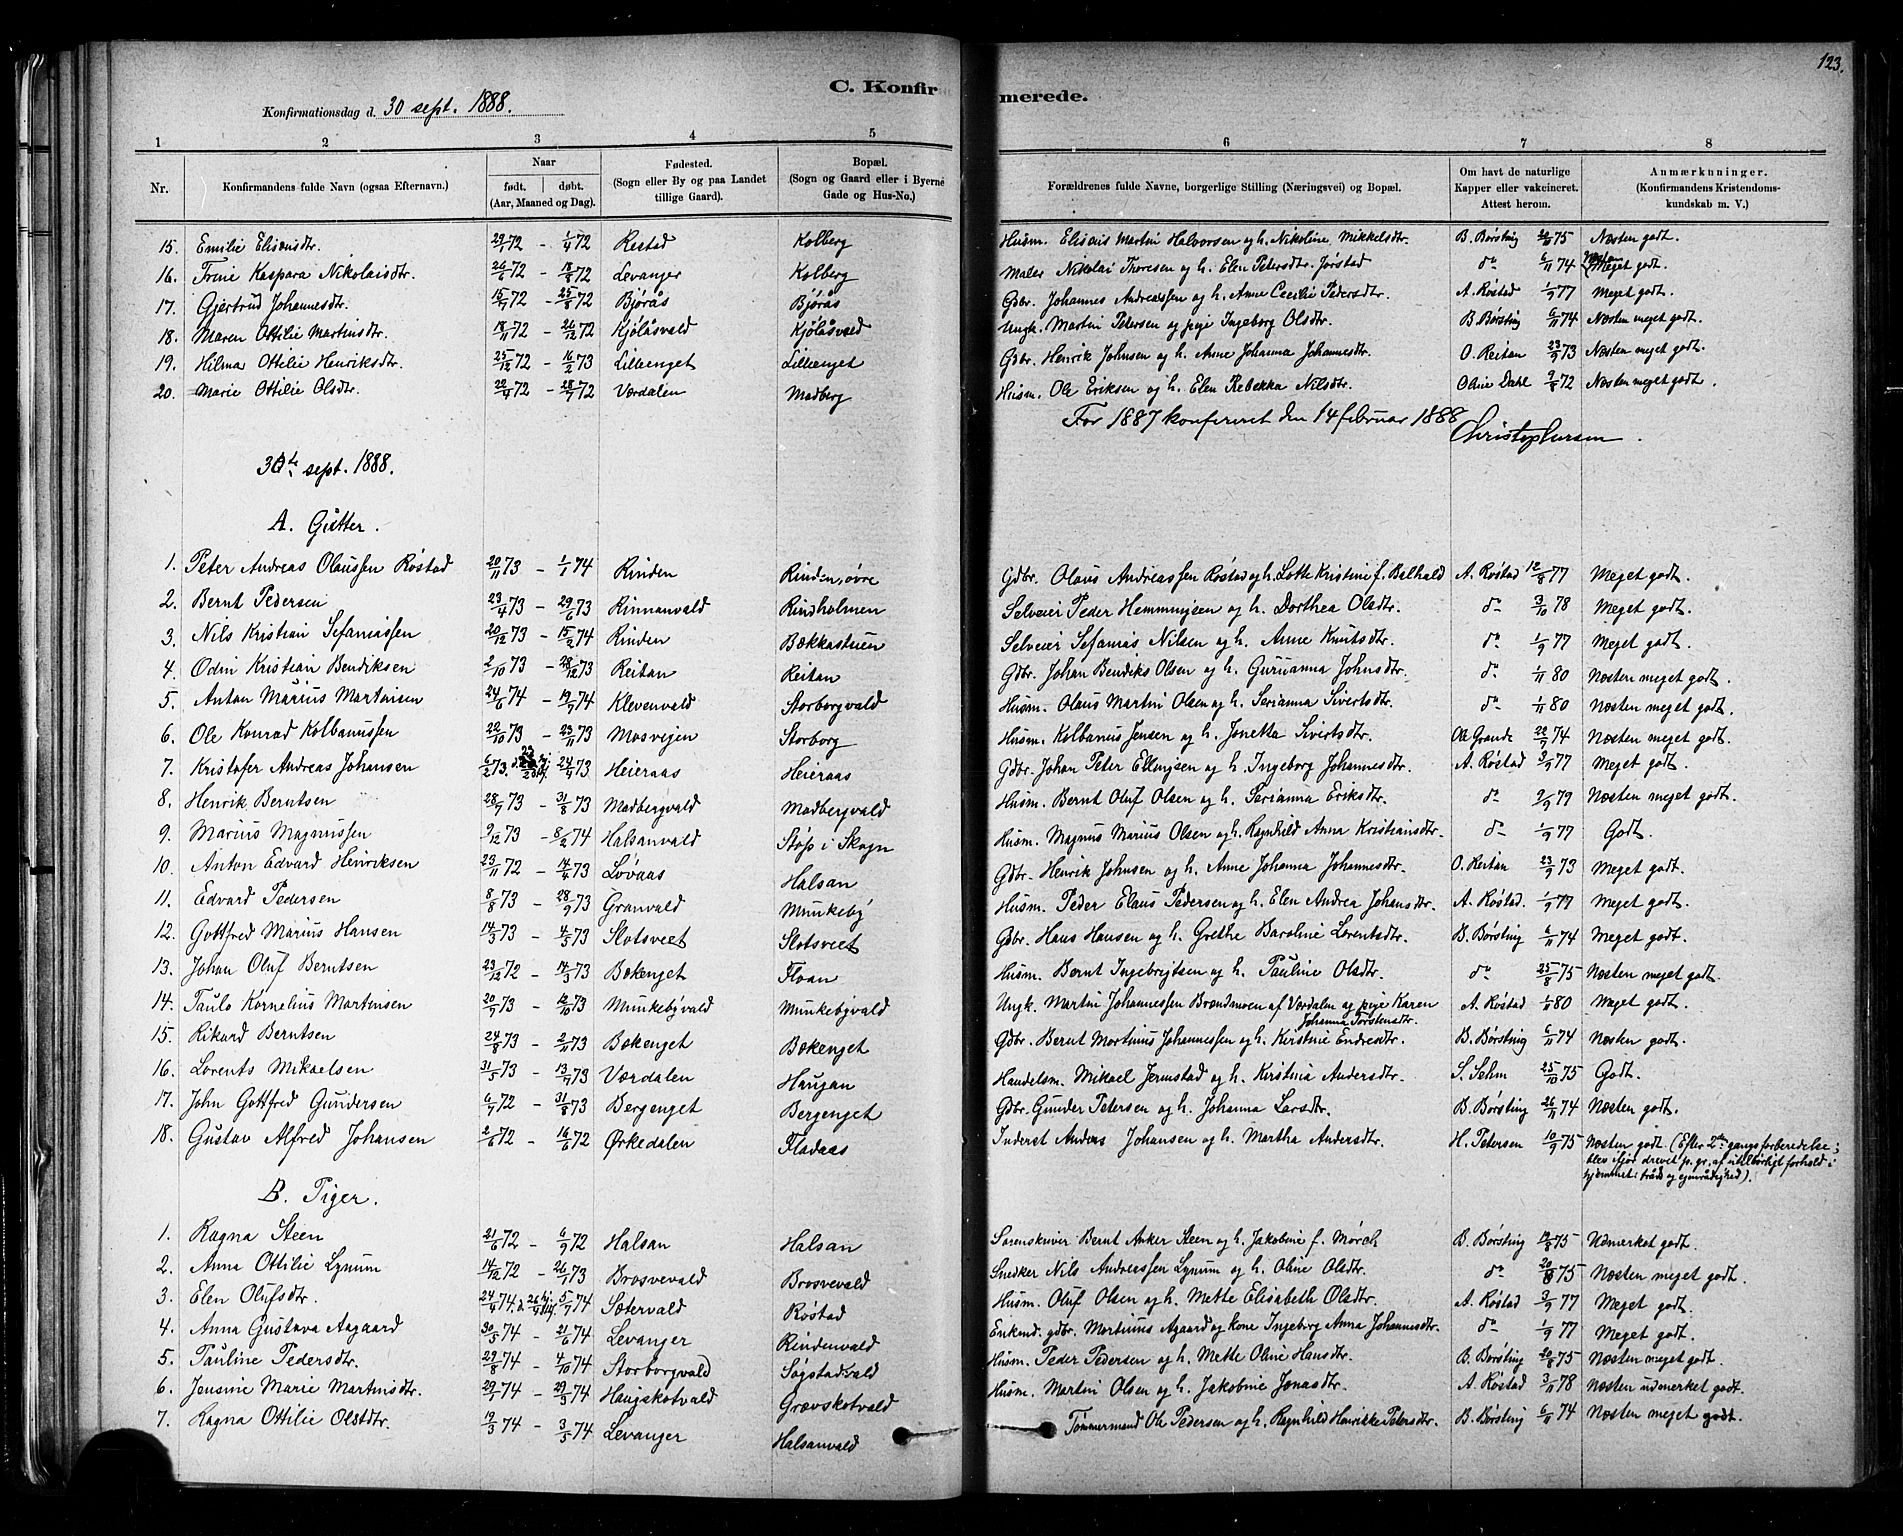 123.
C. Konfirmerede.
Konfirmationsdag d. 30 sept. 1888.
1 2 3 4 5 6 7 8
Nr. Konfirmandens fulde Navn (ogsaa Efternavn.) Naar født. døbt. (Aar, Maaned og Dag). Fødested. (Sogn eller By og paa Landet tillige Gaard). Bopæl. (Sogn og Gaard eller i Byerne Gade og Hus-No.) Forældrenes fulde Navne, borgerlige Stilling (Næringsvei) og Bopæl. Om havt de naturlige Kapper eller vakcineret. Attest herom. Anmærkninger. (Konfirmandens Kristendomskundskab m. V.)
15. Emilie Elisæusdtr. 29/1 72 - 1/4 72 Restad Kolberg Husm. Elisæus Martin Halvorsen og h. Nikoline Mikkelsdtr. B. Børsting 75 Næsten godt.
16. Trine Kaspara Nikolaisdtr. 26/6 72 - 18/8 72 Levanger Kolberg Maler Nikolai Thoresen og h. Elen Petersdtr. Jørstad do 6/11 74 Næsten Meget godt.
17. Gjertrud Johannesdtr. 15/7 72 - 25/8 72 Bjørås Bjørås Gdbr. Johannes Andreassen og h. Anne Cecilie Pedersdtr. A. Røstad 1/9 77 Meget godt.
18. Maren Ottilie Martinsdtr. 18/11 72 - 26/12 72 Kjølåsvald Kjølåsvald Ungk. Martin Petersen og pige Ingeborg Olsdtr. B. Børsting 6/11 74 Næsten meget godt.
19. Hilma Ottilie Henriksdtr. 25/12 72 - 16/2 73 Lillenget Lillenget Gdbr. Henrik Johnsen og h. Anne Johanna Johannesdtr. O. Reitan 23/9 73 Næsten meget godt.
20. Marie Ottilie Olsdtr. 22/4 72 - 28/7 72 Værdalen Madberg Husm. Ole Eriksen og h. Elen Rebekka Nilsdtr. Oline Dahl 9/8 72 Næsten meget godt.
For 1887 konfereret den 14 februar 1888 Christophersen.
30te sept. 1888.
A. Gutter.
1. Peter Andreas Olaussen Røstad 20/11 73 - 1/1 74 Rinden Rinden, øvre Gdbr. Olaus Andreassen Røstad og h. Lotte Kristine f. Balhald A. Røstad 12/8 77 Meget godt.
2. Bernt Pedersen 23/4 73 - 29/6 73 Rinnanvald Rindholmen Selveier Peder Hemmingsen og h. Dorthea Olsdtr. do 3/10 78 Meget godt.
3. Nils Kristian Sefaniassen 20/12 73 - 15/2 74 Rinden Bækkastuen Selveier Sefanias Nilsen og h. Anne Knutsdtr. do 1/9 77 Meget godt.
4. Odin Kristian Bendiksen 2/10 73 - 28/12 73 Reitan Reitan Gdbr. Johan Bendiks Olsen og h. Gurianna Johnsdtr. do 1/11 80 Næsten meget godt.
5. Anton Marius Martinsen 24/6 74 - 19/7 74 Klevenvald Storborgvald Husm. Olaus Martin Olsen og h. Serianna Sivertsdtr. do 1/11 80 Næsten meget godt.
6. Ole Konrad Kolbanussen 22/10 73 - 23/11 73 Mosvigen Storborg Husm. Kolbanus Jensen og h. Jonetta Sivertsdtr. Ole Grande 22/9 74 Næsten meget godt.
7. Kristofer Andreas Johansen 6/2 73. - 24/4 73 Heieraas Heieraas Gdbr. Johan Peter Ellingsen og h. Ingeborg Johannesdtr. A. Røstad 3/9 77 Meget godt.
8. Henrik Berntsen 28/7 73 - 31/8 73 Madbergvald Madbergvald Husm. Bernt Oluf Olsen og h. Serianna Eriksdtr. do 2/9 79 Næsten meget godt.
9. Marius Magnussen 9/12 73 - 8/2 74 Halsanvald Støp i Skogn Husm. Magnus Marius Olsen og h. Ragnhild Anna Kristiansdtr. do 1/9 77 Godt.
10. Anton Edvard Henriksen 23/11 72 - 14/4 73 Løvaas Halsan Gdbr. Henrik Johnsen og h. Anne Johanna Johannesdtr. O. Reitan 23/9 73 Meget godt.
11. Edvard Pedersen 8/8 73 - 28/9 73 Granvald Munkeby Husm. Peder Elaus Pedersen og h. Elen Andrea Johansdtr. A. Røstad. 1/9 77 Meget godt.
12. Gottfred Marius Hansen 14/3 73 - 4/5 73 Slotsveet Slotsveet Gdbr. Hans Hansen og h. Grethe Baroline Lorentsdtr. B. Børsting 6/11 74 Meget godt.
13. Johan Oluf Berntsen 23/12 72 - 14/3 73 Bækenget Floan Husm. Bernt Ingebrigtsen og h. Pauline Olsdtr. do 25/8 75 Næsten meget godt
14. Paulo Kornelius Martinsen 20/7 73 - 12/10 73 Munkebyvald Munkebyvald Ungk. Martin Johannessen Brændmoen af Værdalen og pige Karen Johanna Torstensdtr. A. Røstad 1/11 80 Meget godt.
15. Rikard Berntsen 24/8 73 - 2/11 73 Bækenget Bækenget Gdbr. Bernt Martinus Johannessen og h. Kirstine Endresdtr. B. Børsting 6/11 74 Næsten godt.
16. Lorents Mikaelsen 31/5 73 - 13/7 73 Værdalen Haugan Handelsm. Mikael Jermstad og h. Kirstina Andersdtr. S. Sehm 25/10 75 Godt.
17. John Gottfred Gundersen 6/7 72 - 31/8 73 Bergenget Bergenget Gdbr. Gunder Petersen og h. Johanna Larsdtr. B. Børsting 26/11 74 Næsten godt.
18. Gustav Alfred Johansen 2/6 72 - 16/6 72 Ørkedalen Fladaas Inderst Andras Johansen og h. Martha Andersdtr. H. Petersen 10/9 75 Næsten godt (Efter 2den gangs forberedelse; blev ifjor drevet p. gr. af utilbørligt forhold i hjemmet: tråds og egenrådighed).
B. Piger.
1. Ragna Steen 21/6 72 - 6/9 72 Halsan Halsan Sorenskriver Bernt Anker Steen og h. Jakobine f. Mørch B. Børsting 19/8 75 Udmerket godt.
2. Anna Ottilie Lynum 14/12 72 - 26/1 73 Brosvevald Brosvevald Snedker Nils Andreassen Lynum og h. Oline Olsdtr. do 20/8 75 Næsten meget godt.
3. Elen Olufsdtr. 24/4 74. - 5/7 74 Sætervald Røstad Husm. Oluf Olsen og h. Mette Elisabeth Olsdtr. A. Røstad 3/9 77 Meget godt.
4. Anna Gustava Aagaard 30/5 74 - 21/6 74 Levanger Rindenvald Enkend. gdbr. Martinus Agaard og kone Ingeborg Anna Johannesdtr. do 1/9 77 Meget godt.
5. Pauline Pedersdtr. 29/8 74 - 4/10 74 Storborgvald Søgstadvald Husm. Peder Pedersen og h. Mette Oline Hansdtr. B. Børsting 20/8 75 Næsten meget godt.
6. Jensine Marie Martinsdtr. 29/1 74 - 29/3 74 Haugskotvald Grævskotvald Husm. Martin Olsen og h. Jakobine Jonasdtr. A. Røstad 3/11 78 Næsten udmerket godt.
7. Ragna Ottilie Olsdtr. 19/3 74 - 3/5 74 Levanger Halsanvald Tømmermand Ole Pedersen og h. Ragnhild Henrikke Petersdtr. B. Børsting 6/11 74 Næsten meget godt.